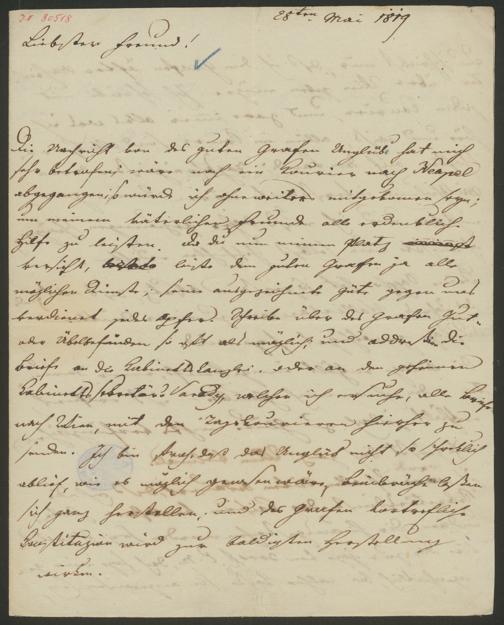 I.N 80518
28ten Mai 1819
Liebster Freund!
Die Nachricht von des guten Grafen Unglük hat mich
sehr betroffen; wäre noch ein Kourier nach Neapel
abgegangen, so würd ich ohne weiters mitgekommen seyn;
um meinem väterlichen Freunde alle erdenkliche
Hilfe zu leisten. Da du nun meinen Platz
versiehst, leiste dem guten Grafen ja alle
möglichen Dienste; seine ausgezeichnete Güte gegen uns
verdient jedes Opfer. Schreibe über des Grafen Gut-
oder Übelbefinden so oft als möglich, und addressire die
Briefe an die Kabinettskanzlei, oder an den geheimen
Kabinettssekretär welcher ich ersuche, alle Briefe
nach Wien, mit den Tagskourieren hierher zu
senden. Ich bin froh, daß das Unglük nicht so schreklich
ablief, wie es möglich gewesen wäre, Beinbrüche lassen
sich ganz herstellen, und des Grafen vortrefliche
Constitution wird zur baldigsten Herstellung
wirken.